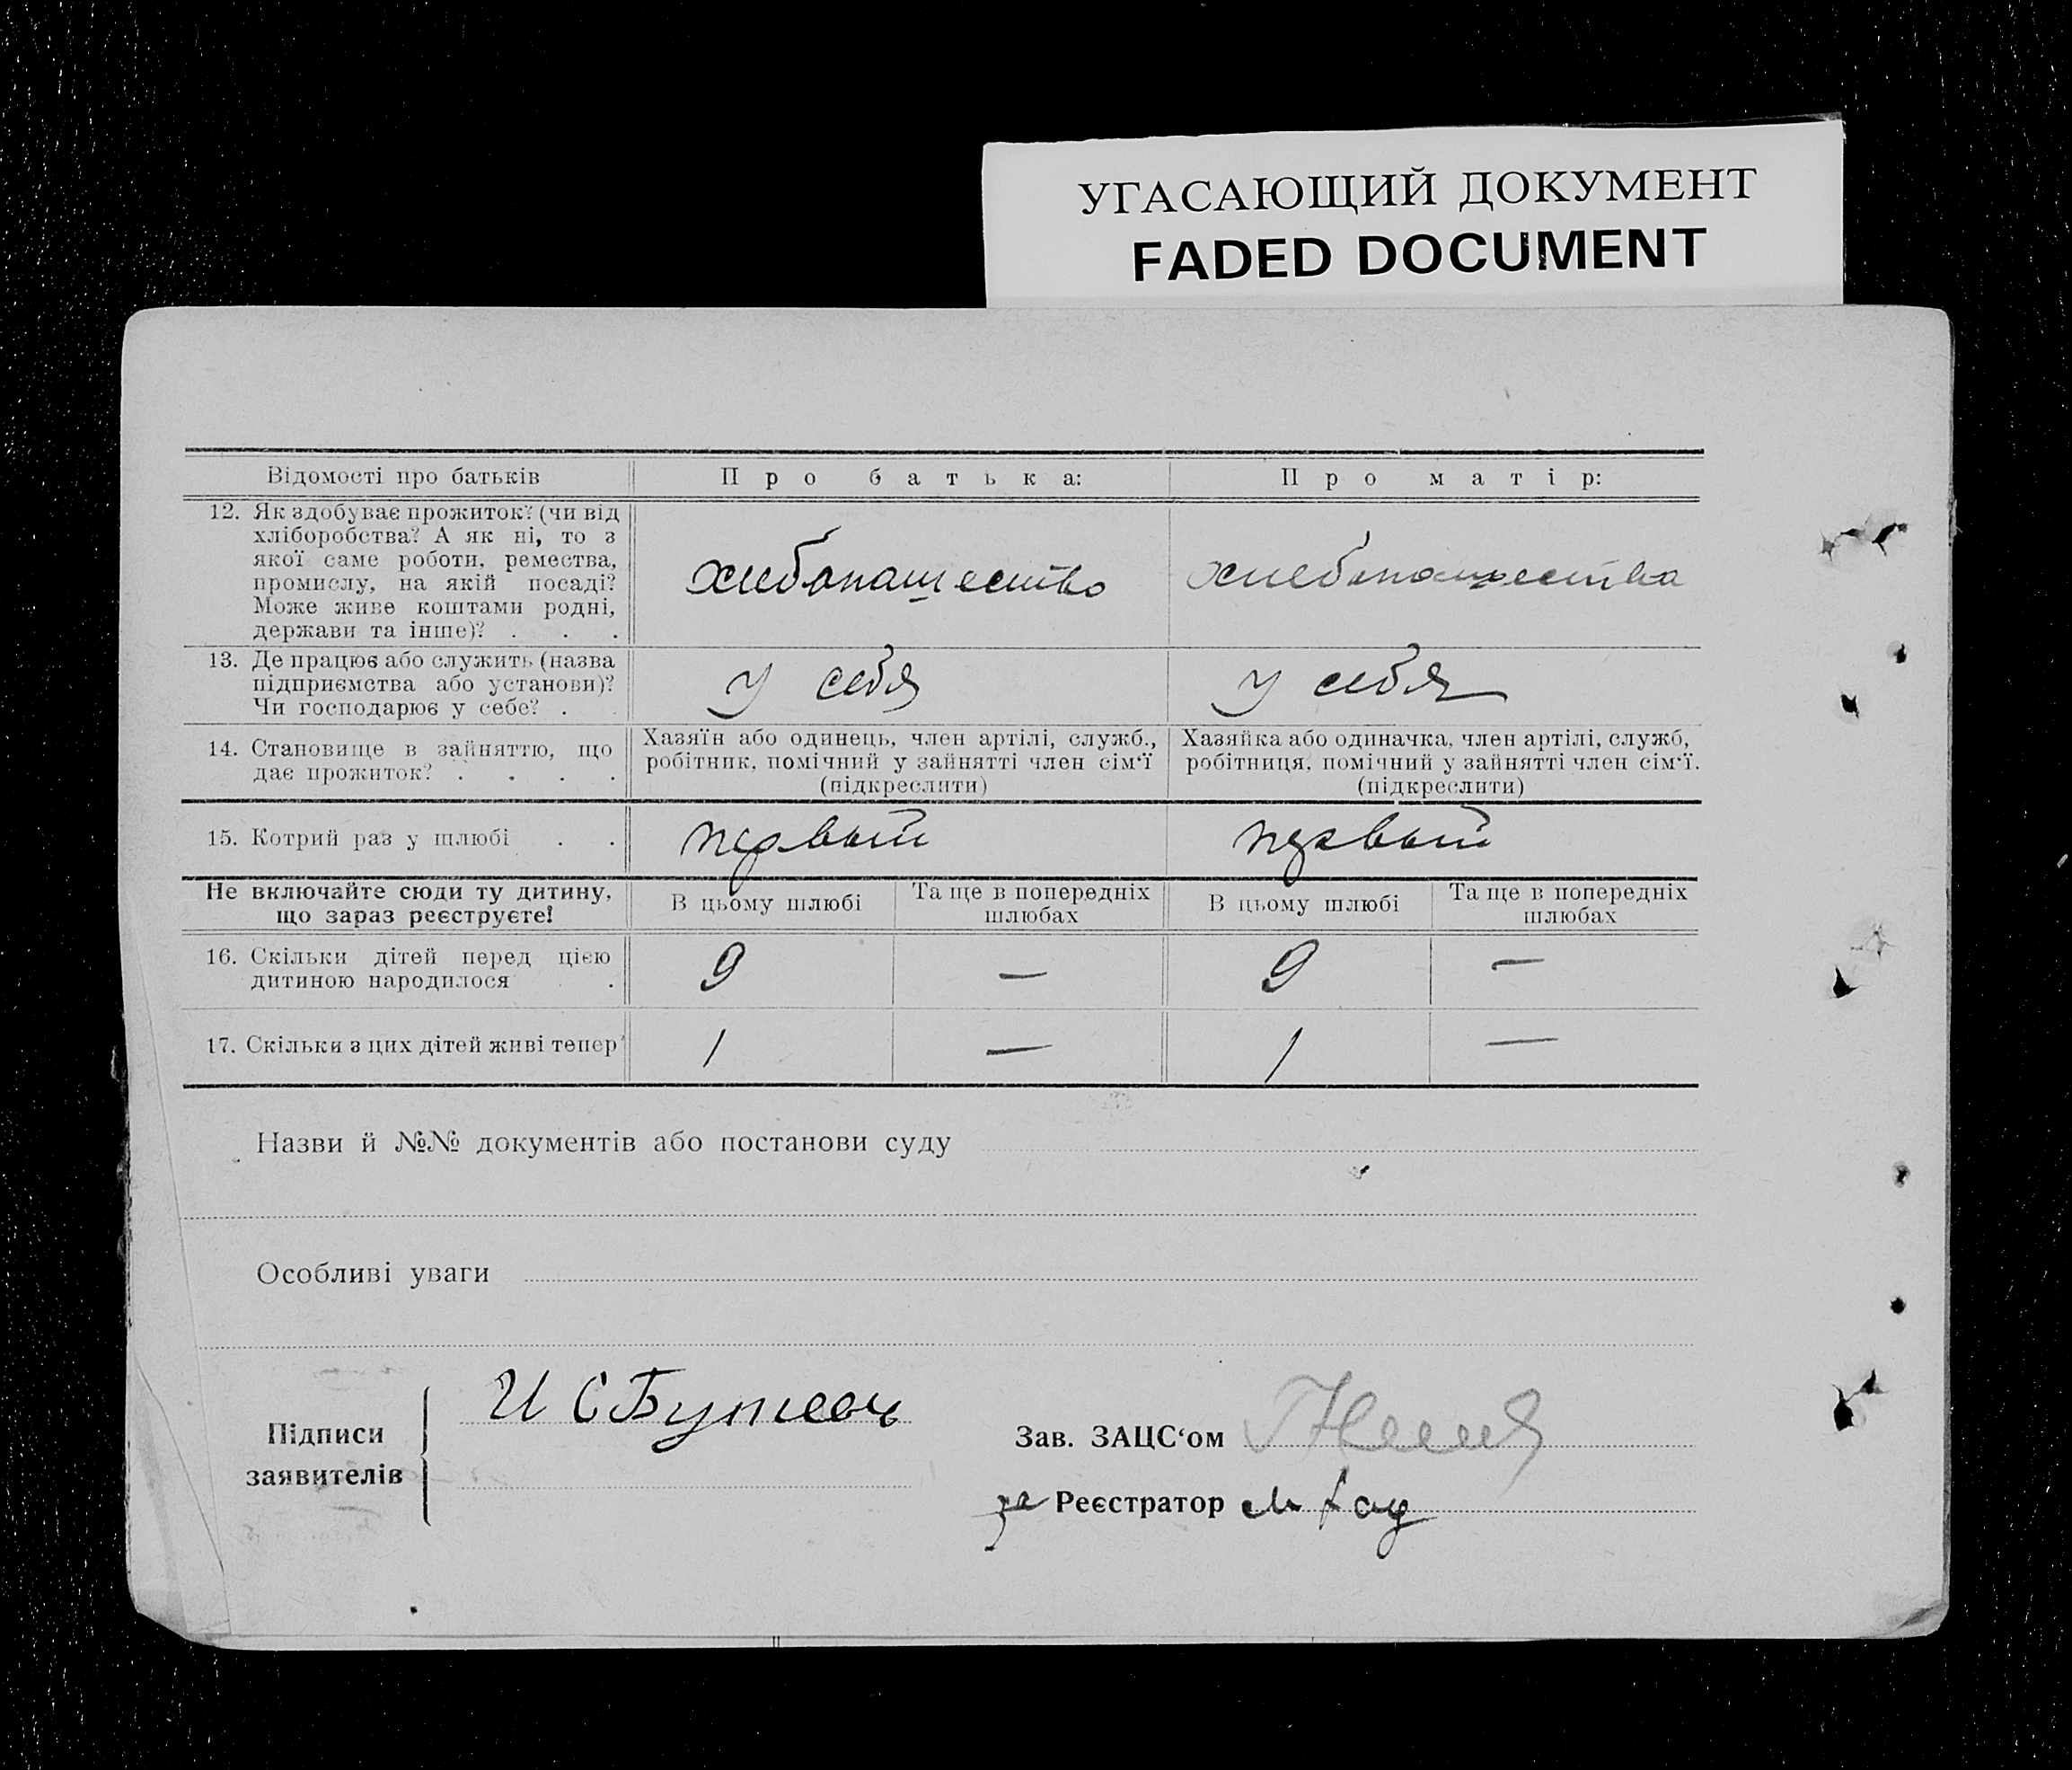 УГАСАЮЩИЙ ДОКУМЕНТ
FADED DOCUMENT
Відомості про батьків
Про батька:
Про матір:
12. Як здобуває прожиток? (чи від
хліборобства? А як ні, то з
якої саме роботи, ремества,
промислу, на якій посаді?
Може живе коштами родні,
держави та інше)? . . .
хлебопашество
хлебопашества
13. Де працює або служить (назва
підприємства або установи)?
Чи господарює у себе? .
у себя
у себя
14. Становище в зайняттю, що
дає прожиток? . . . .
Хазяїн або одинець, член артілі, служб.,
робітник, помічний у зайнятті член сім'ї
(підкреслити)
Хазяйка або одиначка, член артілі, служб,
робітниця, помічний у зайнятті член сім'ї.
(підкреслити)
15. Котрий раз у шлюбі . .
первый
первый
Не включайте сюди ту дитину,
що зараз реєструєте!
В цьому шлюбі
Та ще в попередніх
шлюбах
В цьому шлюбі
Та ще в попередніх
шлюбах
16. Скільки дітей перед цією
дитиною народилося .
9
—
9
—
17. Скільки з цих дітей живі тепер
1
—
1
—
Назви й №№ документів або постанови суду
Особливі уваги
Підписи
заявителів
И С
Зав. ЗАЦС‘ом
за Реєстратор